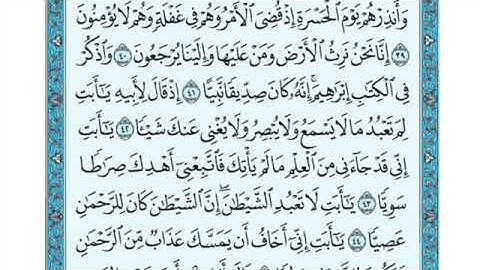 وَأَنذِرْهُمْ يَوْمَ الْحَسْرَةِ إِذْ قُضِيَ الْأَمْرُ وَهُمْ فِي غَفْلَةٍ وَهُمْ لَا يُؤْمِنُونَ
٣٩ إِنَّا نَحْنُ نَرِثُ الْأَرْضَ وَمَنْ عَلَيْهَا وَإِلَيْنَا يُرْجَعُونَ ٤٠ وَاذْكُرْ
فِي الْكِتَابِ إِبْرَاهِيمَ إِنَّهُ كَانَ صِدِّيقًا نَّبِيًّا ٤١ إِذْ قَالَ لِأَبِيهِ يَا أَبَتِ
لِمَ تَعْبُدُ مَا لَا يَسْمَعُ وَلَا يُبْصِرُ وَلَا يُغْنِي عَنكَ شَيْئًا ٤٢ يَا أَبَتِ
إِنِّي قَدْ جَاءَنِي مِنَ الْعِلْمِ مَا لَمْ يَأْتِكَ فَاتَّبِعْنِي أَهْدِكَ صِرَاطًا
سَوِيًّا ٤٣ يَا أَبَتِ لَا تَعْبُدِ الشَّيْطَانَ إِنَّ الشَّيْطَانَ كَانَ لِلرَّحْمَٰنِ
عَصِيًّا ٤٤ يَا أَبَتِ إِنِّي أَخَافُ أَن يَمَسَّكَ عَذَابٌ مِّنَ الرَّحْمَٰنِ